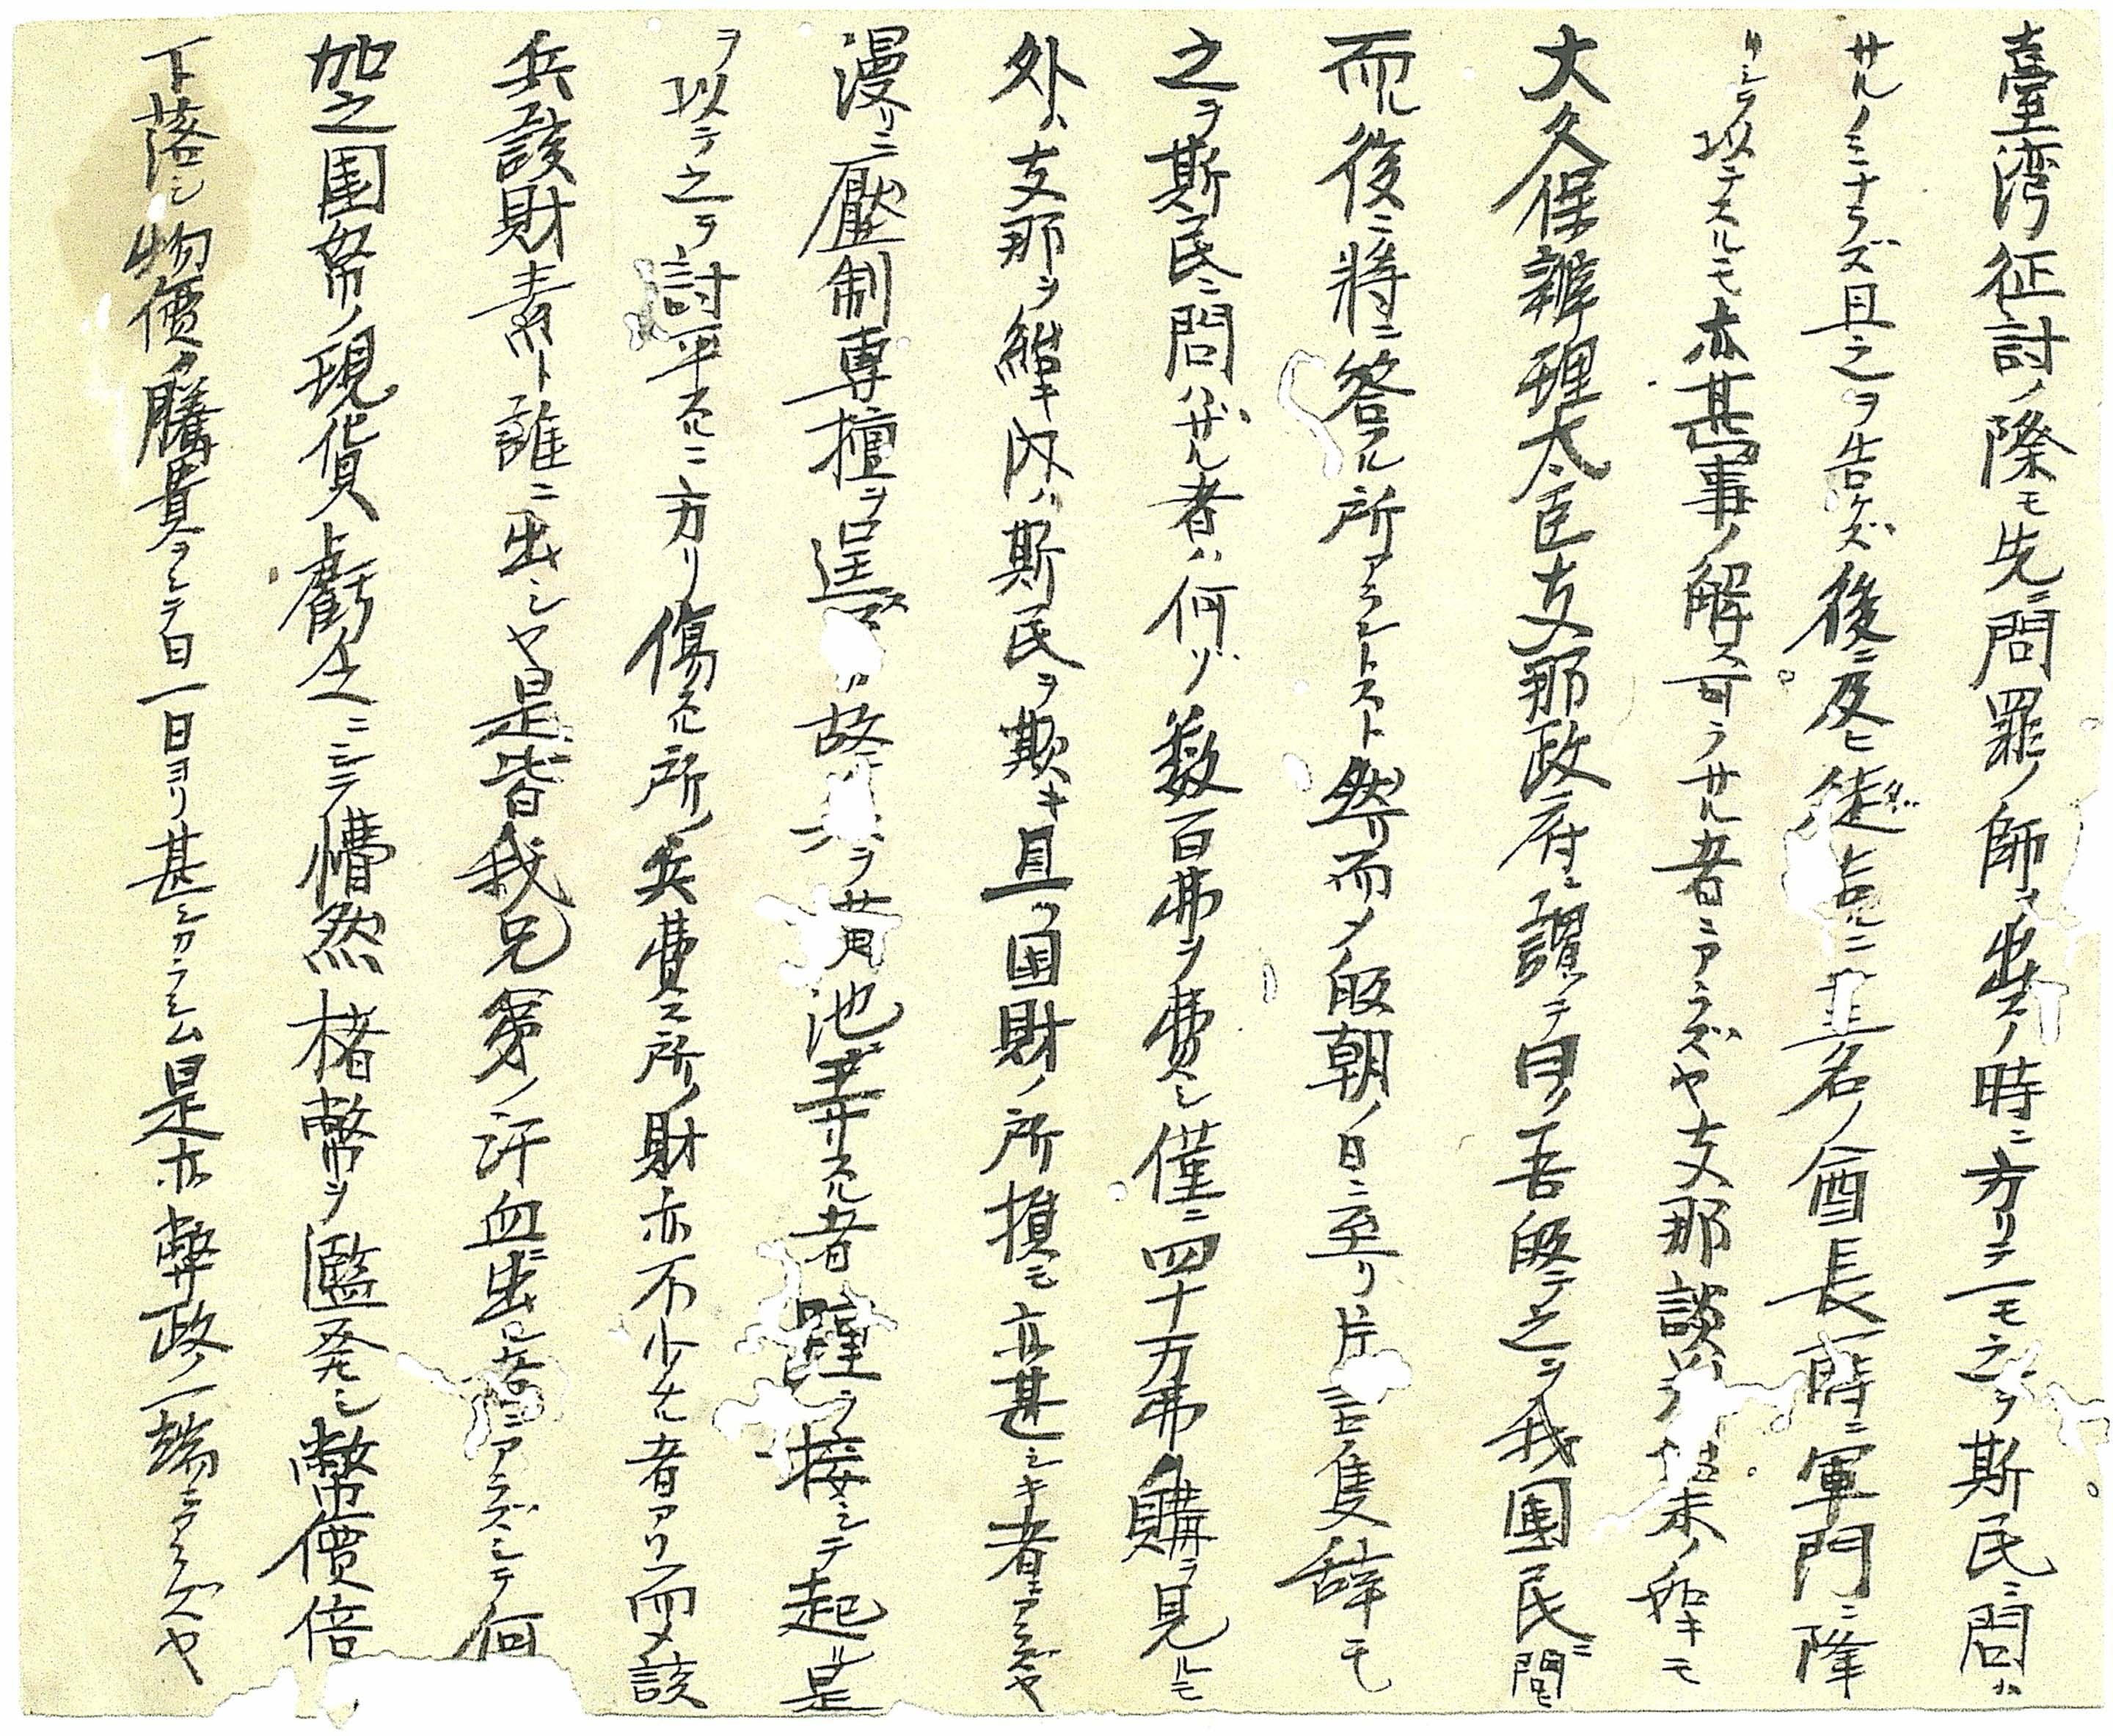 臺湾征討ノ際モ先ニ問罪ノ師ヲ出スノ時ニ方リテ一モ之ヲ斯民ニ問ハ
サルノミナラズ且之ヲ告ゲズ後ニ及ヒ徒ニ名ノ酋長一時ニ軍門ニ降
リシヲ以テスルモ亦甚事ノ解ス可ラサル者ニアラズヤ支那談判ノ始末ノ如キモ
大久保辨理大臣支那政府ニ謂テ曰ク吾皈テ之ヲ我國民ニ問ヒ
而ル後ニ將ニ答フル所アラントスト然リ而メ皈朝ノ日ニ至リ片言隻辞モ
之ヲ斯民ニ問ハザル者ハ何ゾ数百弗ヲ費シ僅ニ四十万弗ノ購ヲ見ルモ
外ハ支那ヲ紿キ内ハ斯民ヲ欺キ且ツ國財ノ所損モ亦甚シキ者ニアラズヤ
漫リニ壓制専擅ヲ逞 故ニ兵ヲ潢池ニ弄スル者踵ヲ接シテ起ル是
ヲ以テ之ヲ討平スルニ方リ傷フル所ノ兵費ス所ノ財亦不少ナル者アリ而メ該
兵該財素ト誰ニ出シヤ是皆我兄弟ノ汗血ニ出ヒシ者ニアラズシテ何
加之国帑ノ現貨虧乏ニシテ懵然楮幣ヲ濫発シ幣價倍
下落シ物價ノ騰貴ヲシテ日一日ヨリ甚シカラシム是亦弊政ノ一端ニアラズヤ